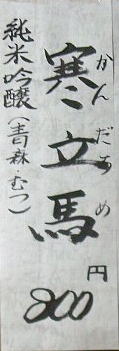 寒立馬
かんだちめ
円
800
純米吟醸(青森・むつ)